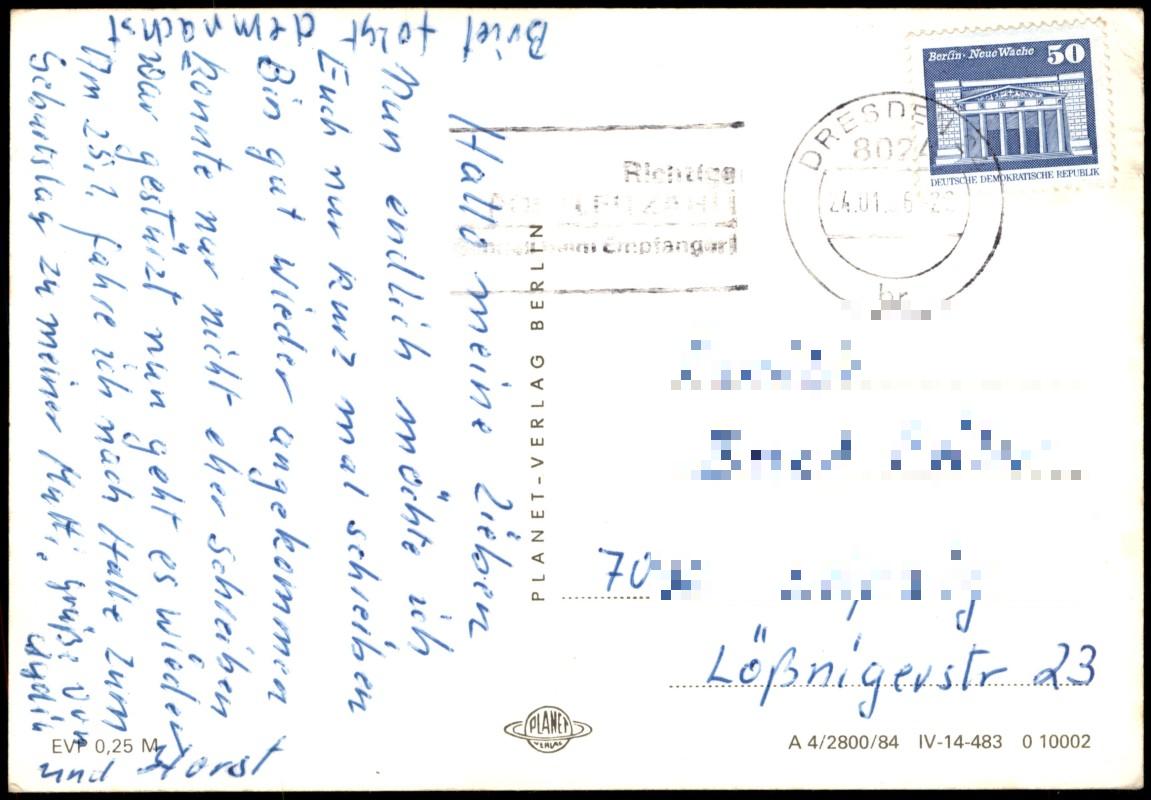 Hallo meine Lieben
Nun endlich möchte ich
Euch nur kurz mal schreiben
Bin gut wieder angekommen
konnte nur nicht eher schreiben
war gestürzt nun geht es wieder
Am 25.1. fahre ich nach Halle zum
Geburtstag zu meiner Mutti. Grüße von
und Horst
Brief folgt demnächst
EVP 0,25 M
PLANET-VERLAG BERLIN
PLANET
VERLAG
Berlin · Neue Wache 50
DEUTSCHE DEMOKRATISCHE REPUBLIK
DRESDEN
8024
24.01.
br
Richtige
Empfangsort
70
Lößnigerstr 23
A 4/2800/84 IV-14-483 0 10002